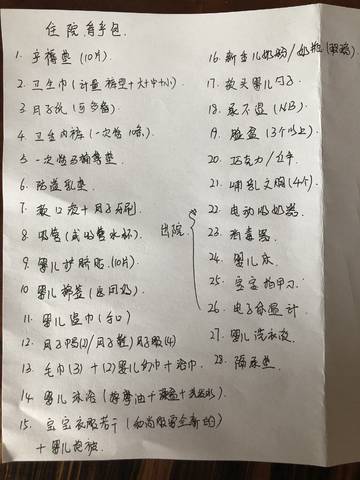 住院待产包
1. 产褥垫 (10片)
2. 卫生巾 (计量裤型+大+中+小)
3. 月子纸 (可多备)
4. 卫生内裤 (一次性10条)
5. 一次性马桶垫
6. 防溢乳垫
7. 漱口液+月子牙刷
8. 吸管 (或吸管水杯)
9. 婴儿护脐贴 (10片)
10. 婴儿棉签
11. 婴儿湿巾 (手口)
12. 月子帽(2)/月子鞋/月子服(4)
13. 毛巾(3)+(2)婴儿方巾+浴巾
14. 婴儿沐浴 (按摩油+
15. 宝宝衣服若干 (和尚服要全新的)
+ 婴儿抱被
16. 新生儿奶粉/奶瓶 (玻璃)
17. 软头婴儿勺子
18. 尿不湿 (NB)
19. 脸盆 (3个以上)
20. 巧克力/红牛
21. 哺乳文胸 (4个)
出院
22. 电动吸奶器
23. 消毒器
24. 婴儿床
25. 宝宝指甲刀
26. 电子体温计
27. 婴儿洗衣液
28. 隔尿垫